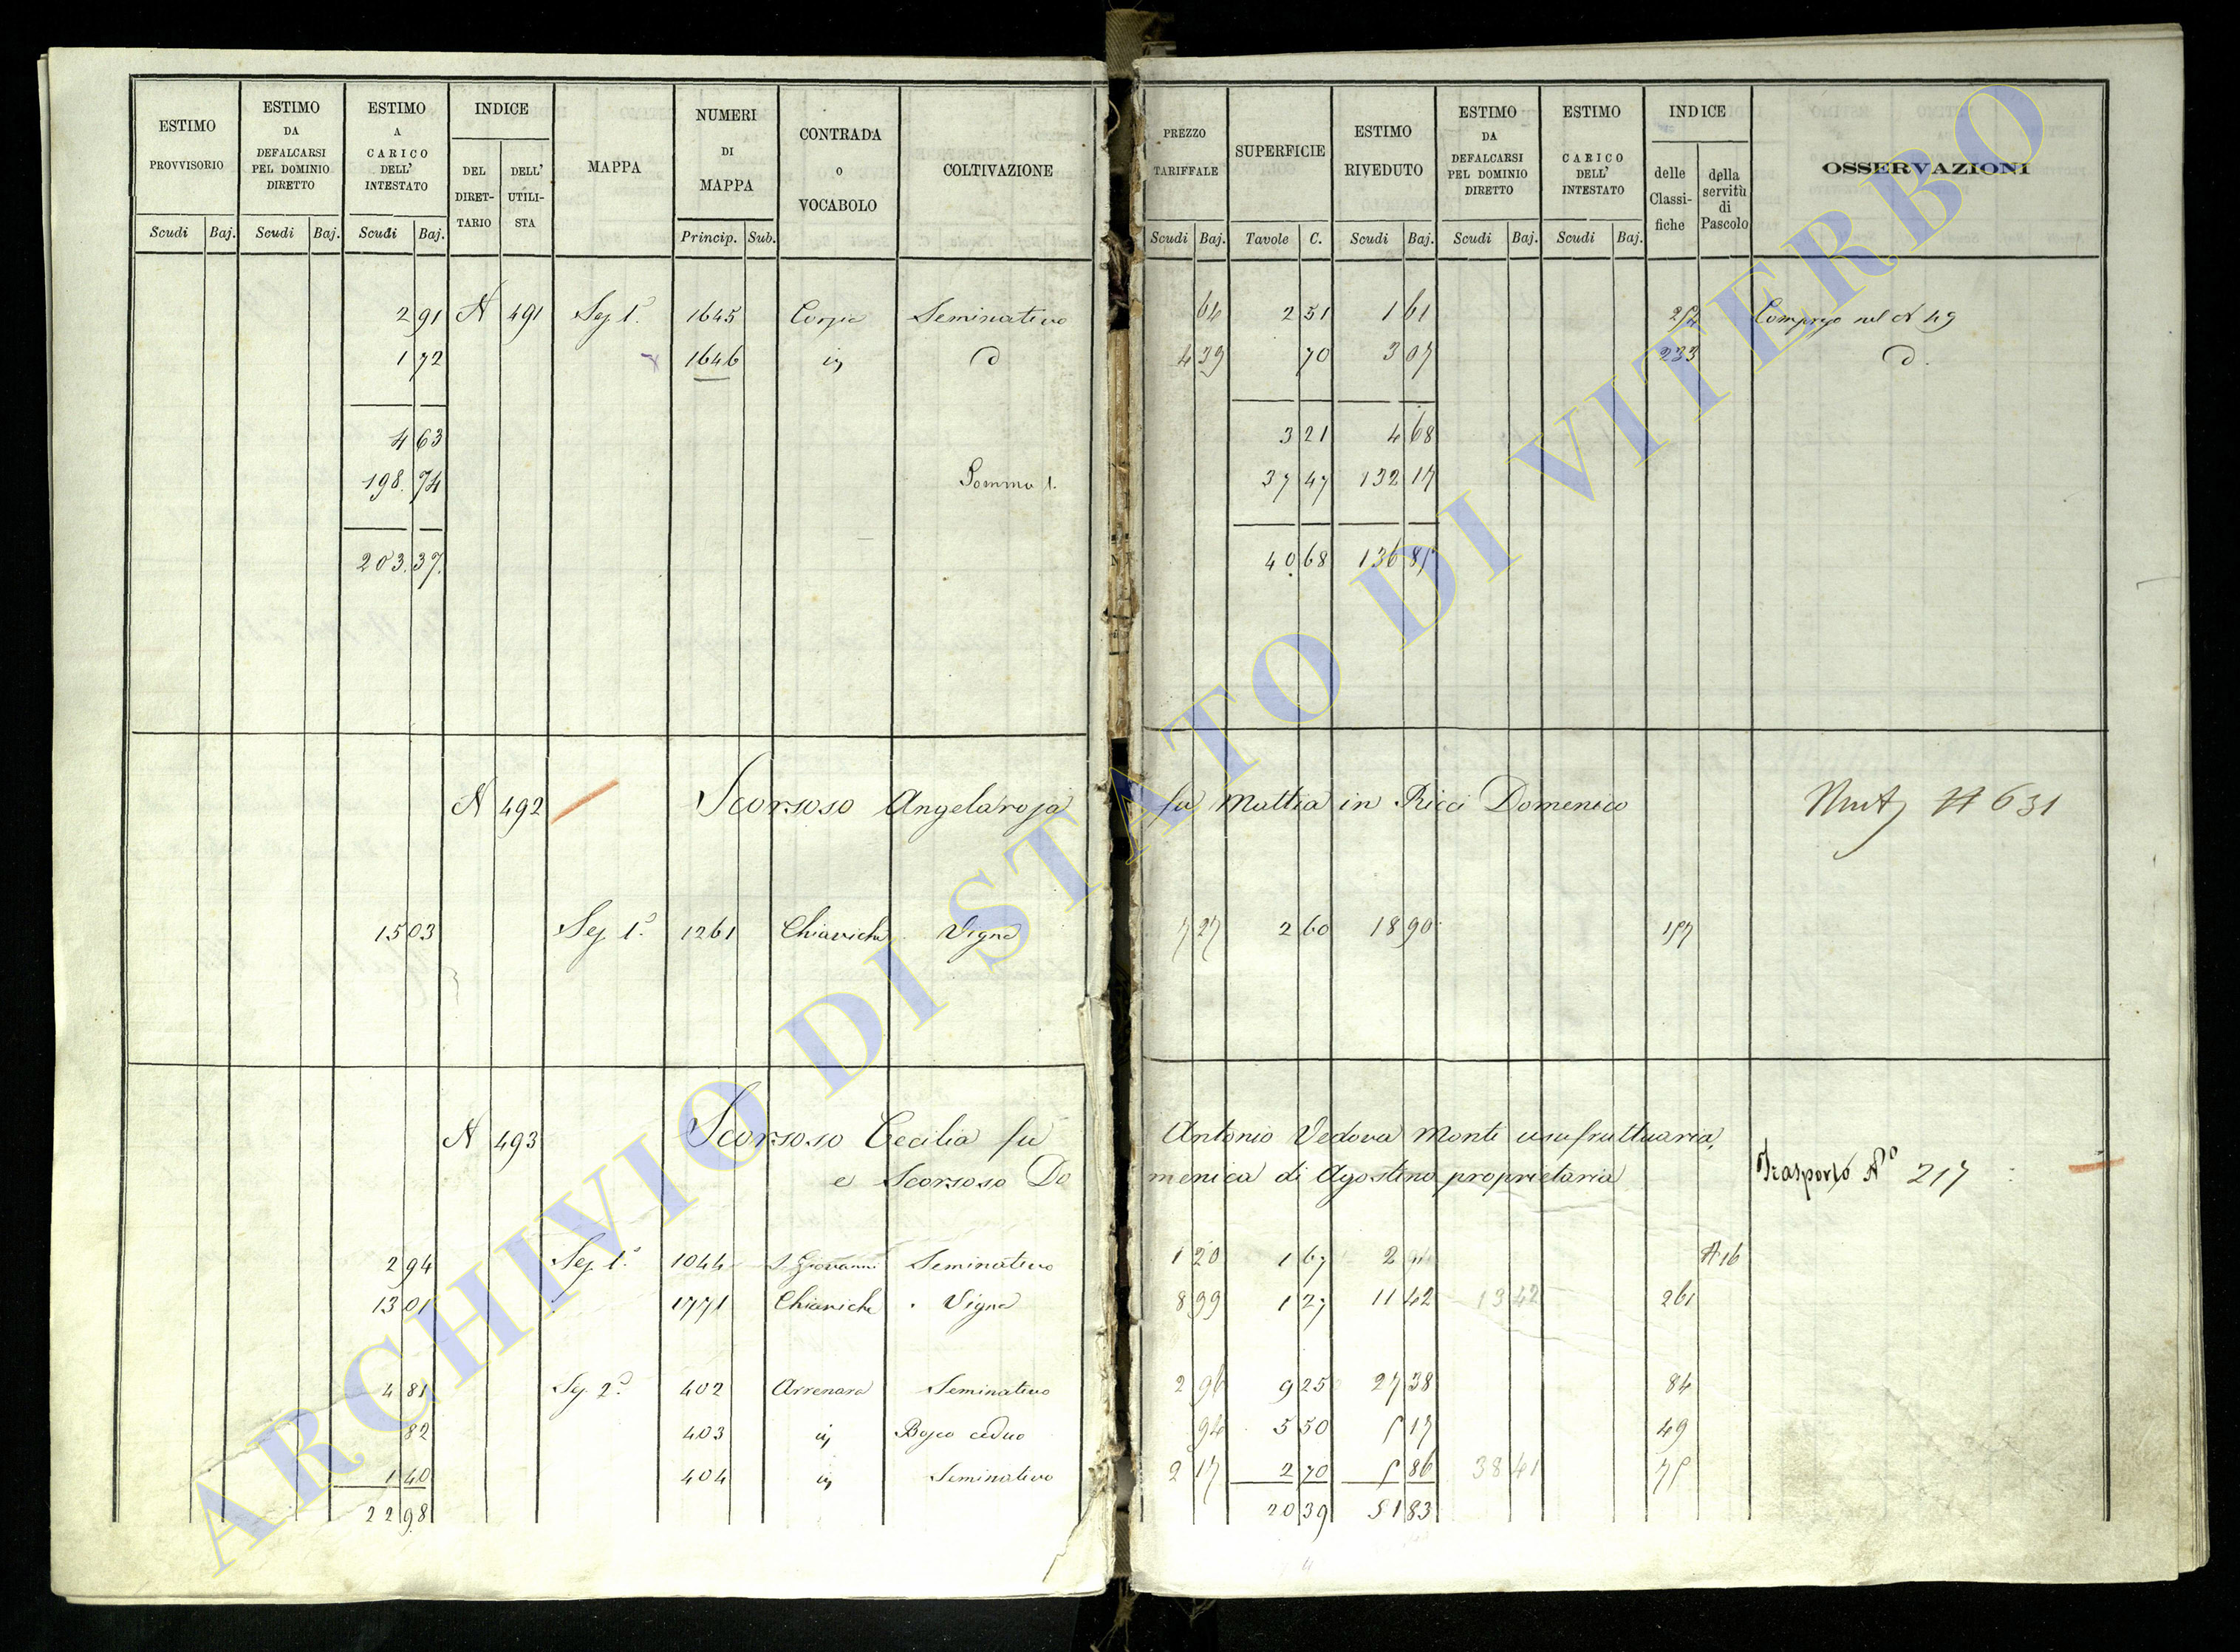 ESTIMO PROVVISORIO
ESTIMO DA DEFALCARSI PEL DOMINIO DIRETTO
ESTIMO A CARICO DELL' INTESTATO
INDICE
DEL DIRET-TARIO
DELL' UTILI-STA
MAPPA
NUMERI DI MAPPA
CONTRADA o VOCABOLO
COLTIVAZIONE
PREZZO TARIFFALE
SUPERFICIE
ESTIMO RIVEDUTO
ESTIMO DA DEFALCARSI PEL DOMINIO DIRETTO
ESTIMO CARICO DELL' INTESTATO
INDICE
delle Classi-fiche
della servitù di Pascolo
OSSERVAZIONI
Scudi Baj. Scudi Baj. Scudi Baj. Princip. Sub. Scudi Baj. Tavole C. Scudi Baj. Scudi Baj. Scudi Baj.
2 91 N 491 Sez. 1ª 1645 Seminativo 64 2 51 1 61 Compreso nel N 49
1 72 1646 id d 4 39 70 3 07 233 d.
4 63 3 21 4 68
198. 74 Somma 1. 37 47 132 17
203. 37. 40 68 136 85
N 492 Scorsoso Angelarosa fu Mattia in Ricci Domenico N 631
15 03 Sez. 1ª 1261 Chiaviche Vigna 7 27 2 60 18 90 157
N 493 Scorsoso Cecilia fu Antonio Vedova Monti usufruttuaria,
e Scorsoso Domenica di Agostino proprietaria Trasporto Nº 217
2 94 Sez. 1ª 1044 S. Giovanni Seminativo 1 20 1 67 2 16
13 01 1771 Chiaviche Vigna 8 99 1 27 11 42 13 42 261
4 81 Sez. 2ª 402 Arrenara Seminativo 2 96 9 25 27 38 84
82 403 id Bosco ceduo 94 5 50 5 17 49
1 40 404 id Seminativo 2 17 2 70 5 86 38 41 75
22 98 20 39 51 83
ARCHIVIO DI STATO DI VITERBO